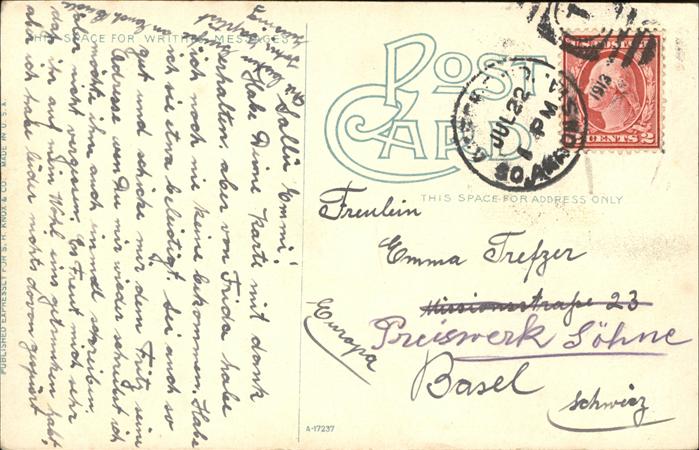 THIS SPACE FOR WRITTEN MESSAGES
POST
CARD
THIS SPACE FOR ADDRESS ONLY
JUL 22
1 PM
1913
U.S. POSTAGE
CENTS 2
Salli Emmi!
Habe Deine Karte mit dank
erhalten, aber von Frida habe
ich noch nie keine bekommen. Habe
ich sie etwa beleidigt. Sei auch so
gut und schicke mir dem Fritz seine
Adresse wenn du mir wieder schreibst ich
möchte ihm auch einmal schreiben,
aber nicht vergessen. Es freut mich sehr
daß ihr auf mein Wohl eins getrunken habt,
aber ich habe leider nichts davon gespürt
Freulein
Emma Trefzer
Missionsstraße 23
Preiswerk Söhne
Basel
Schweiz
Europa
A-17237
PUBLISHED EXPRESSLY FOR S. H. KNOX & CO. MADE IN U.S.A.